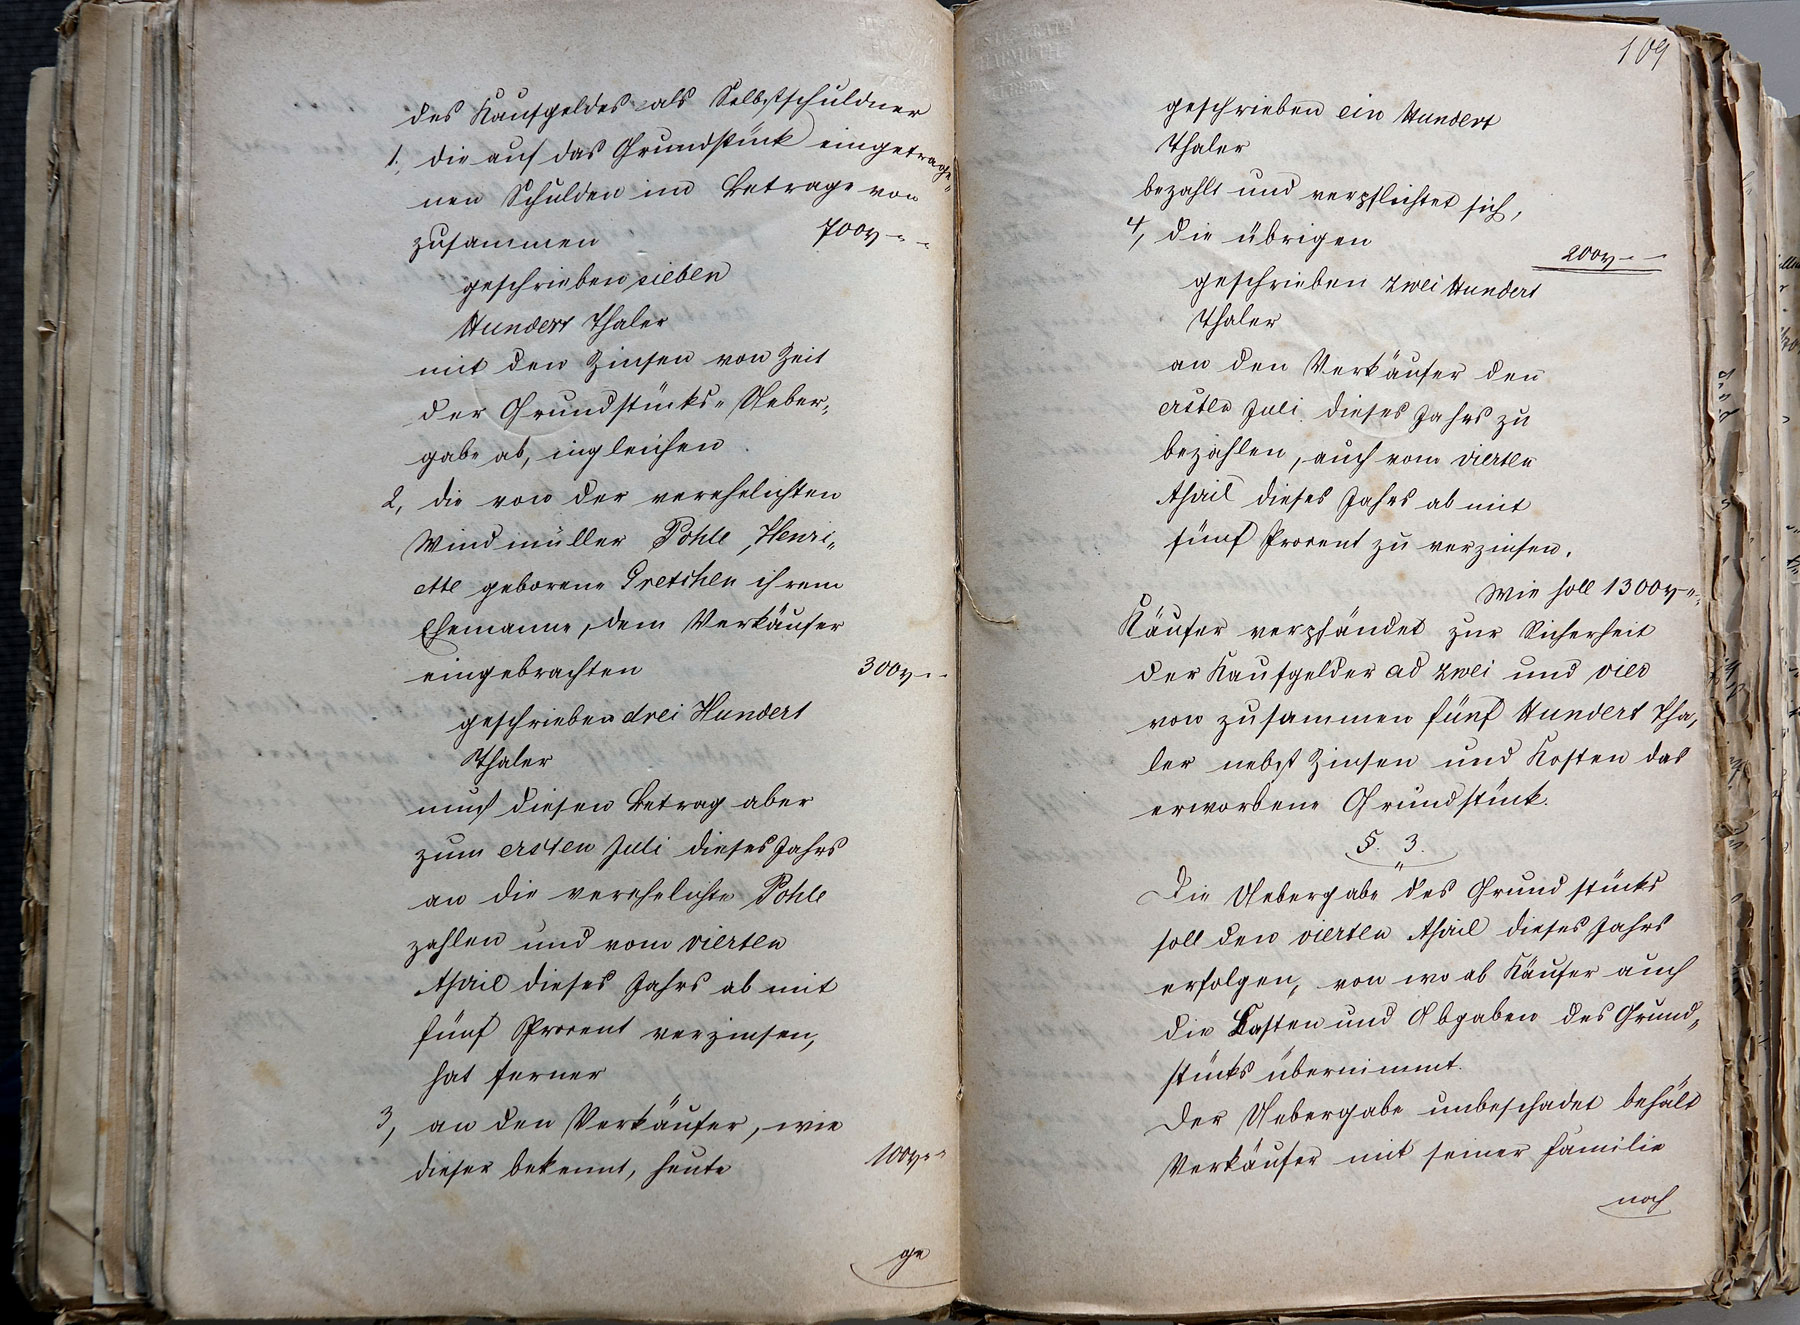 des Kaufgeldes als Selbstschuldner
1., die auf das Grundstück eingetrage„
nen Schulden im Betrage von
zusammen 700 „ „
geschrieben sieben
Hundert Thaler
mit den Zinsen von Zeit
der Grundstücks„Ueber„
gabe ab, ingleichen
2, die von der verehelichten
Windmüller Pohle, Henri„
ette geborene Gretschen ihrem
Ehemanne, dem Verkäufer
eingebrachten 300 „ „
geschrieben drei Hundert
Thaler
muß diesen Betrag aber
zum ersten Juli dieses Jahrs
an die verehelichte Pohle
zahlen und vom vierten
April dieses Jahrs ab mit
fünf Procent verzinsen,
hat ferner
3, an den Verkäufer, wie
dieser bekennt, heute 100 „ „
ge
109
geschrieben ein Hundert
Thaler
bezahlt und verpflichtet sich,
4, die übrigen 200 „ „
geschrieben zwei Hundert
Thaler
an den Verkäufer den
ersten Juli dieses Jahrs zu
bezahlen, auch vom vierten
April dieses Jahrs ab mit
fünf Procent zu verzinsen.
Wie soll 1300 „ „
Käufer verpfändet zur Sicherheit
der Kaufgelder ad zwei und vier
von zusammen fünf Hundert Tha„
ler nebst Zinsen und Kosten das
erworbene Grundstück.
§. 3.
Die Uebergabe des Grundstücks
soll den vierten April dieses Jahrs
erfolgen, von wo ab Käufer auch
die Lasten und Abgaben des Grund„
stücks übernimmt.
Der Uebergabe unbeschadet behält
Verkäufer mit seiner Familie
noch